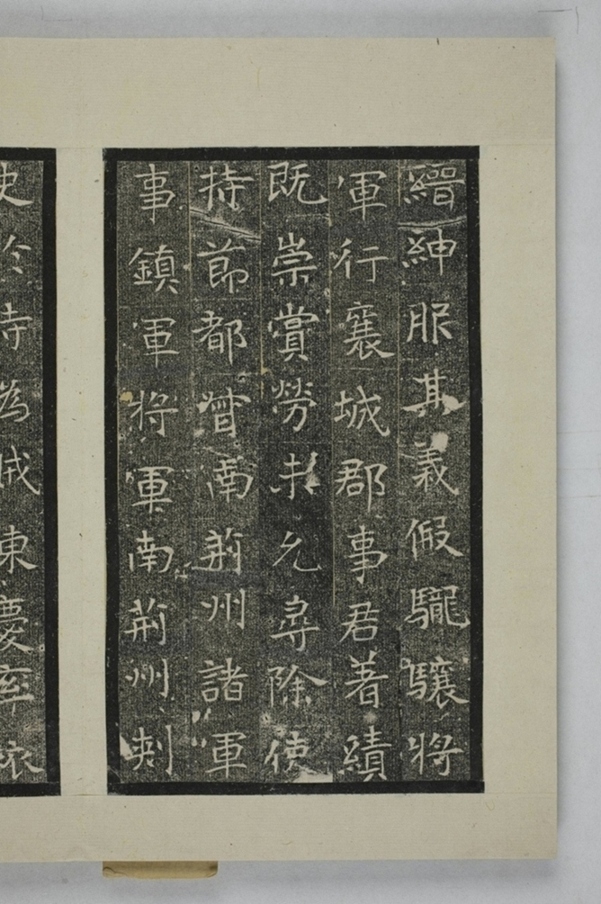 縉紳服其義假驪驤將
軍行襄城郡事君著績
既崇賞勞未允尋除使
持節都督南荊州諸軍
事鎮軍將軍南荊州刺
史於時為賊東慶率依